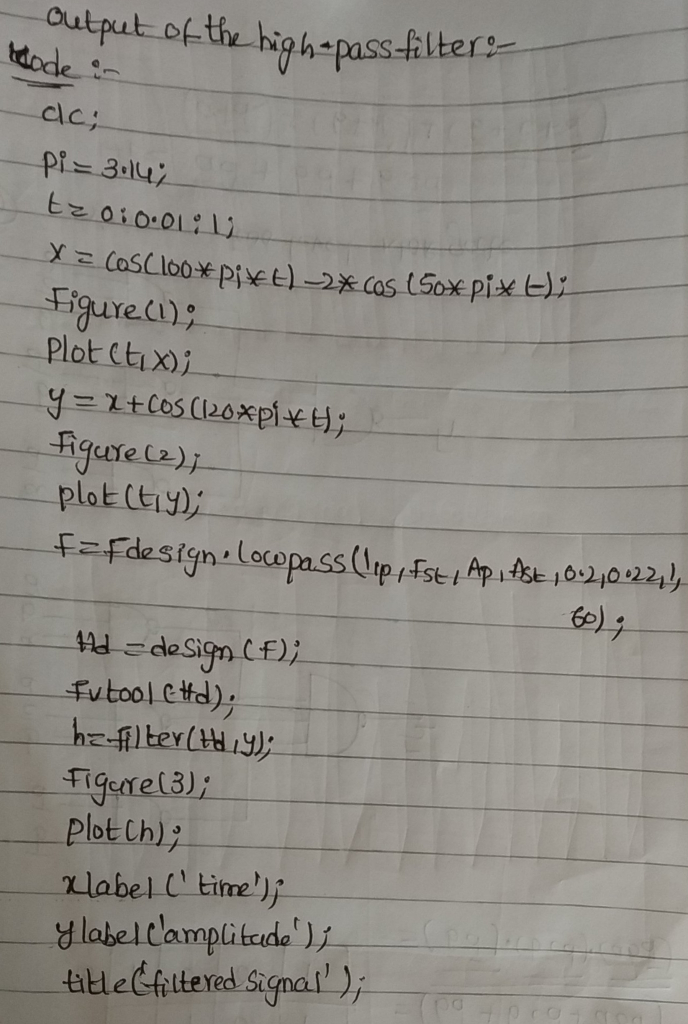 output of the high-pass filter:-
Code :-
clc;
pi = 3.14;
t = 0:0.01:1;
x = cos(100*pi*t)-2*cos(50*pi*t);
Figure(1);
Plot(t,x);
y = x+cos(120*pi*t);
Figure(2);
plot(t,y);
F=Fdesign.lowpass('fp,fst,Ap,Ast,0.2,0.22,1,
60);
Hd = design(F);
Fvtool(Hd);
h=filter(Hd,y);
Figure(3);
Plot(h);
xlabel('time');
ylabel('amplitude');
title('filtered signal');